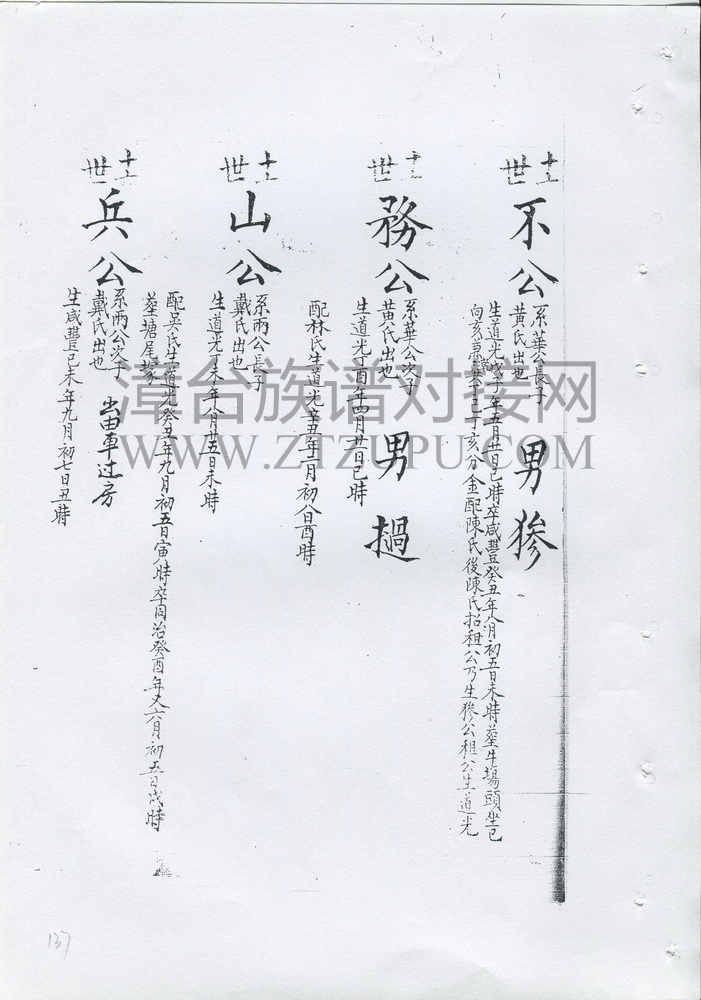 十二世
不公
系華公長子
黃氏出也
男㺑
生道光戊子年五月廿日巳時卒咸豐癸丑年八月初五日未時塟牛塲頭坐巳
向亥兼 丁亥分金配陳氏後陳氏招租公乃生㺑公租公生道光
務公
系華公次子
黃氏出也
男撾
生道光丁酉年四月廿日巳時
配林氏生道光辛丑年二月初八日酉時
十二世
山公
系两公長子
戴氏出也
生道光丁未年八月廿五日未時
配吳氏生道光癸丑年九月初五日寅時卒同治癸酉年又六月初五日戌時
塟塘尾塚
十二世
兵公
系两公次子
戴氏出也
出由車过房
生咸豐己未年九月初七日丑時
漳台族谱对接网
WWW.ZTZUPU.COM
137